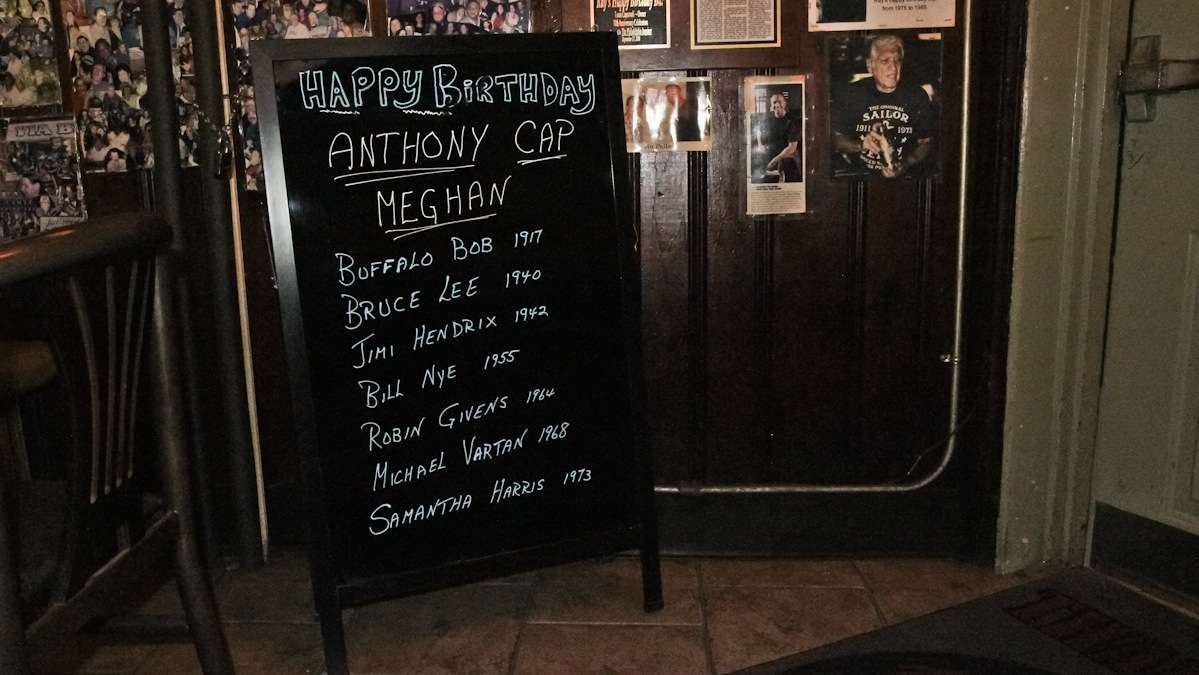 HAPPY BIRTHDAY
ANTHONY CAP
MEGHAN
BUFFALO BOB 1917
BRUCE LEE 1940
JIMI HENDRIX 1942
BILL NYE 1955
ROBIN GIVENS 1964
MICHAEL VARTAN 1968
SAMANTHA HARRIS 1973
Ray's Happy Birthday Bar
from 1978 to 1985
THE ORIGINAL
SAILOR
1911 1973